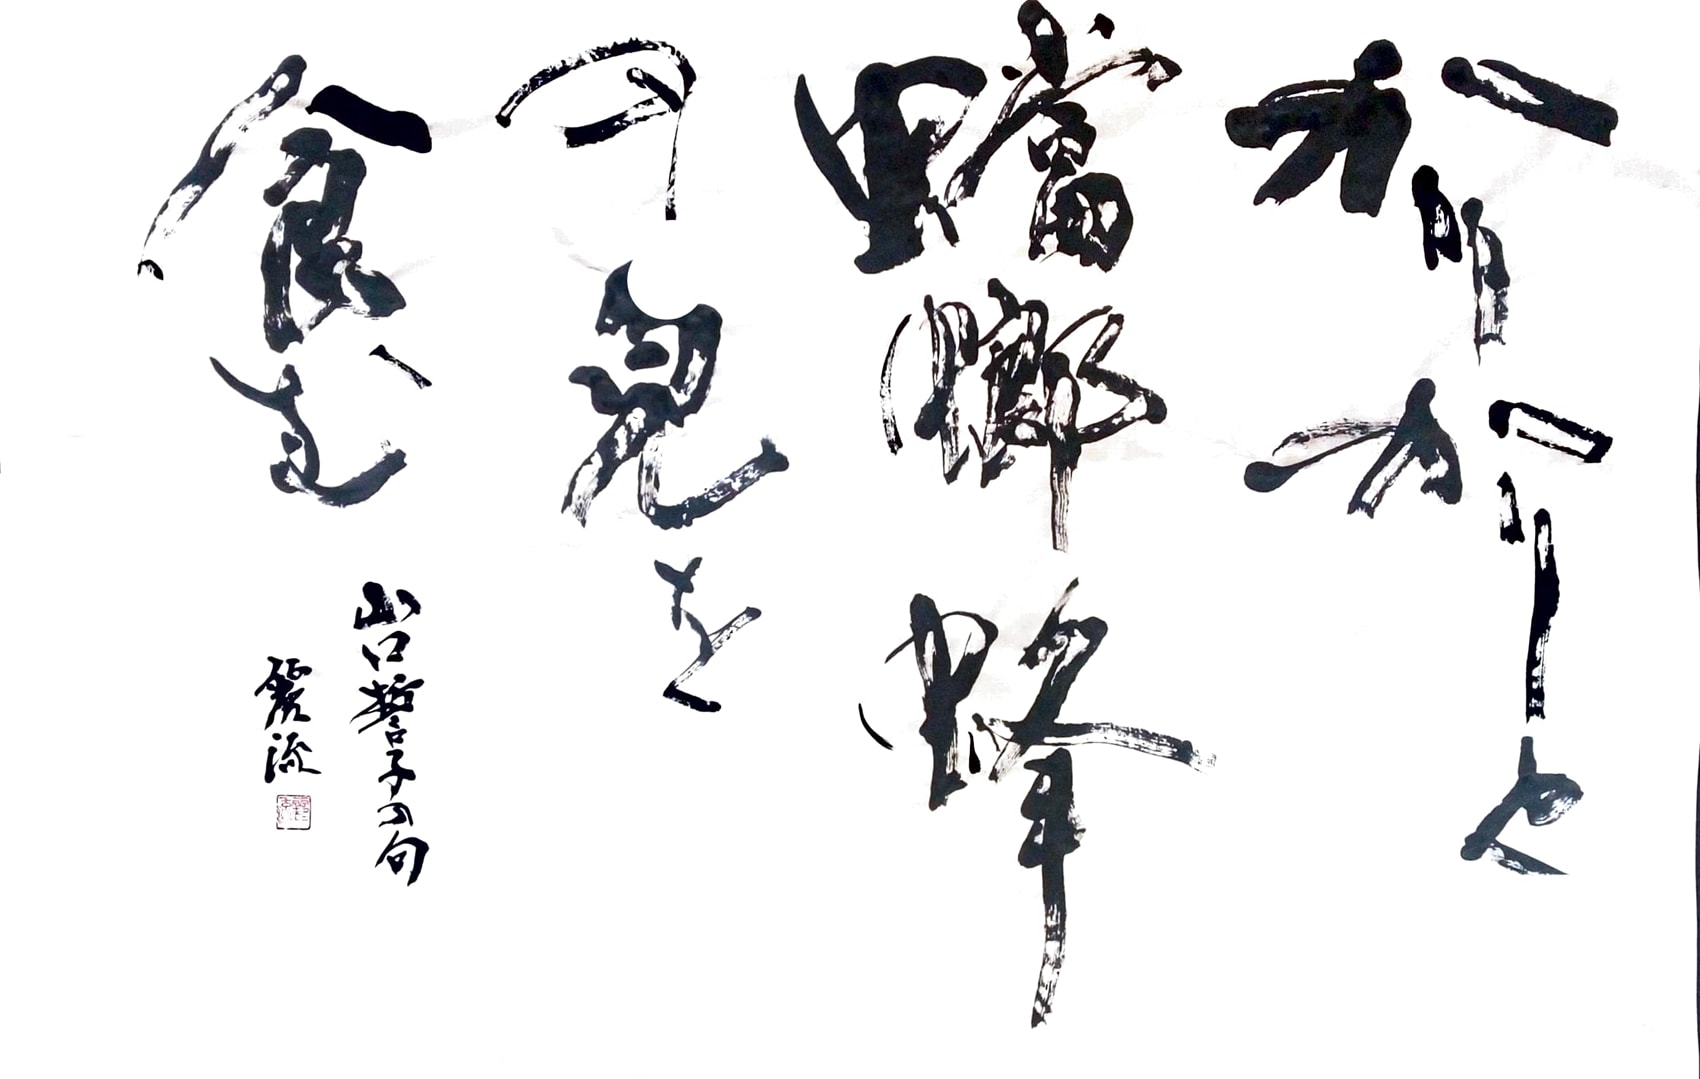 かりかりと
蟷螂蜂
の皃を
食む
山口誓子の句